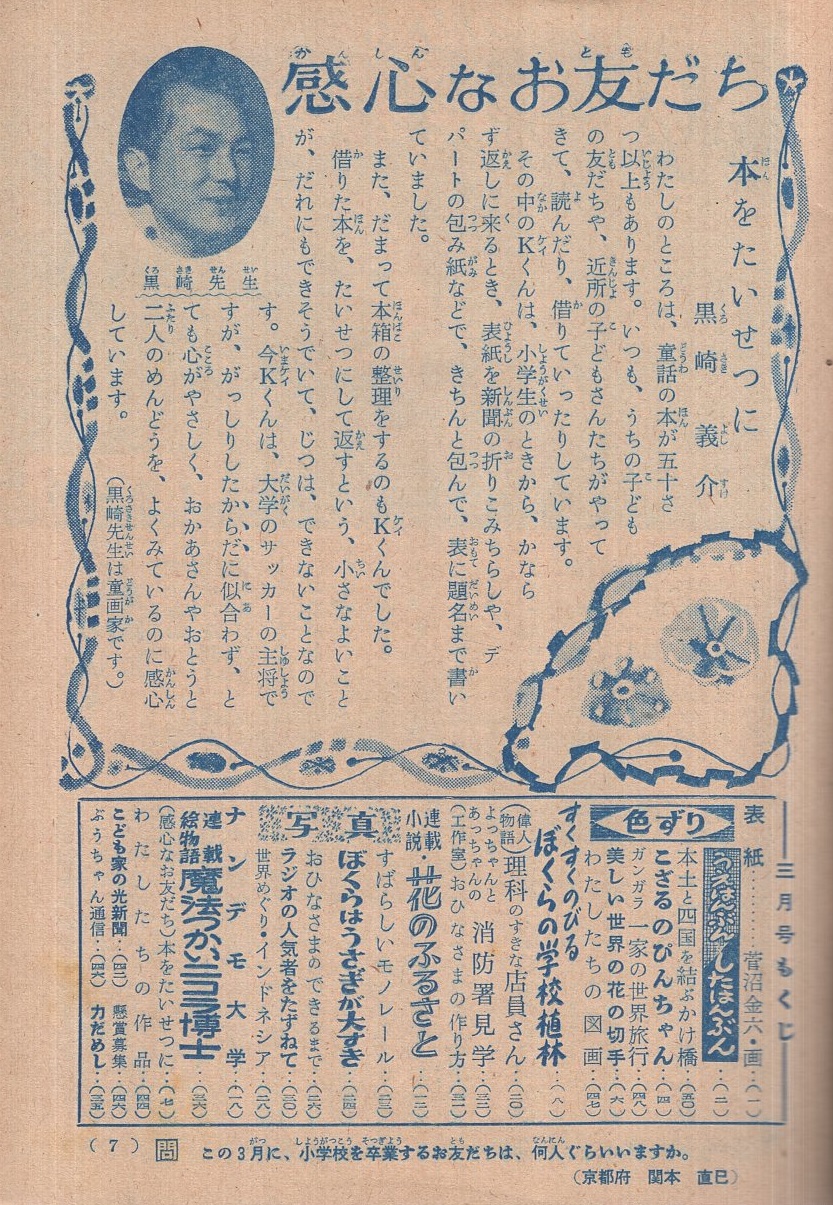 感心なお友だち
本をたいせつに
黒崎義介
わたしのところは、童話の本が五十さ
つ以上もあります。いつも、うちの子ども
の友だちや、近所の子どもさんたちがやって
きて、読んだり、借りていったりしています。
その中のKくんは、小学生のときから、かなら
ず返しに来るとき、表紙を新聞の折りこみちらしや、デ
パートの包み紙などで、きちんと包んで、表に題名まで書い
ていました。
また、だまって本箱の整理をするのもKくんでした。
借りた本を、たいせつにして返すという、小さなよいこと
が、だれにもできそうでいて、じつは、できないことなので
す。今Kくんは、大学のサッカーの主将で
すが、がっしりしたからだに似合わず、と
ても心がやさしく、おかあさんやおとうと
二人のめんどうを、よくみているのに感心
しています。
(黒崎先生は童画家です。)
黒崎先生
三月号もくじ
表紙………菅沼金六・画…(一)
色ずり
うえはんぶんしたはんぶん…(二)
本土と四国を結ぶかけ橋…(五〇)
こざるのぴんちゃん…(四)
ガンガラ一家の世界旅行…(四八)
美しい世界の花の切手…(六)
わたしたちの図画…(四七)
すくすくのびる
ぼくらの学校植林…(八)
(偉人物語)理科のすきな店員さん…(二〇)
よっちゃんとあっちゃんの 消防署見学…(三二)
(工作室)おひなさまの作り方…(三一)
連載小説・花のふるさと…(一二)
写真
すばらしいモノレール…(二三)
ぼくらはうさぎが大すき…(二四)
おひなさまのできるまで…(二六)
ラジオの人気者をたずねて…(三〇)
世界めぐり・インドネシア…(二八)
ナンデモ大学…(一八)
連載絵物語 魔法つかいニコラ博士…(三六)
(感心なお友だち)本をたいせつに…(七)
わたしたちの作品…(四四)
こども家の光新聞…(四二) 懸賞募集…(四六)
ぶうちゃん通信…(四六) 力だめし…(三五)
(7) 問 この3月に、小学校を卒業するお友だちは、何人ぐらいいますか。
(京都府 関本 直巳)